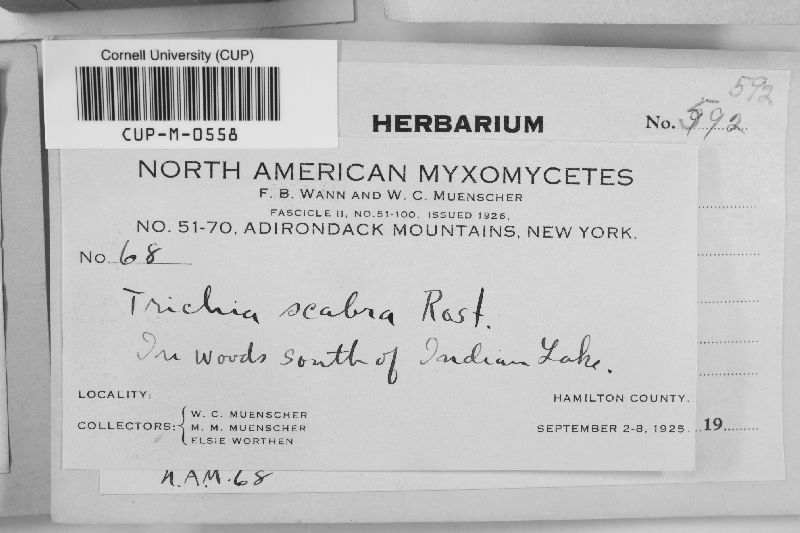 Cornell University (CUP)
CUP-M-0558
592
HERBARIUM
No. 592
NORTH AMERICAN MYXOMYCETES
F. B. WANN AND W. C. MUENSCHER
FASCICLE II, NO.51-100. ISSUED 1926,
NO. 51-70, ADIRONDACK MOUNTAINS, NEW YORK.
No. 68
Trichia scabra Rost.
In woods south of Indian Lake.
LOCALITY: HAMILTON COUNTY.
COLLECTORS: W. C. MUENSCHER
M. M. MUENSCHER
ELSIE WORTHEN
SEPTEMBER 2-8, 1925. 19
N.A.M. 68